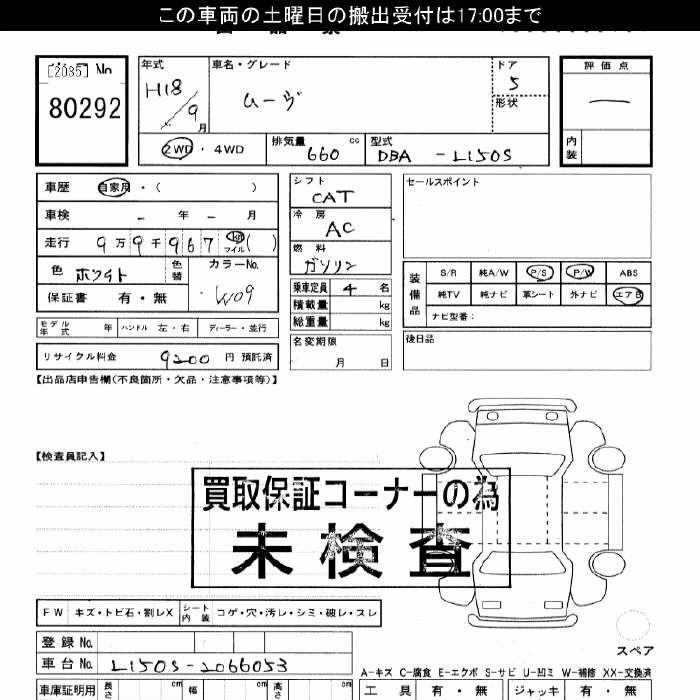 この車両の土曜日の搬出受付は17:00まで
[2035] No
80292
年式 H18/9月
車名・グレード ムーヴ
ドア 5
形状
評価点 —
内装
2WD ・ 4WD
排気量 660 cc
型式 DBA - L150S
車歴 自家用・( )
車検 - 年 - 月
走行 9万9千967 km マイル ( )
色 ホワイト 色替
カラーNo. W09
保証書 有・無
モデル年式 年 ハンドル 左・右 ディーラー・並行
リサイクル料金 9200 円 預託済
シフト CAT
冷房 AC
燃料 ガソリン
乗車定員 4 名
積載量 kg
総重量 kg
名変期限
月 日
セールスポイント
装備品
S/R 純A/W P/S P/W ABS
純TV 純ナビ 革シート 外ナビ エアB
ナビ型番:
後日品
【出品店申告欄(不良箇所・欠品・注意事項等)】
【検査員記入】
買取保証コーナーの為
未検査
FW キズ・トビ石・割レX シート内装 コゲ・穴・汚レ・シミ・破レ・スレ
登録 No.
車台 No. L150S-2066053
スペア
A-キズ C-腐食 E-エクボ S-サビ U-凹ミ W-補修 XX-交換済
車庫証明用 長さ cm 幅 cm 高さ cm
工具 有・無 ジャッキ 有・無